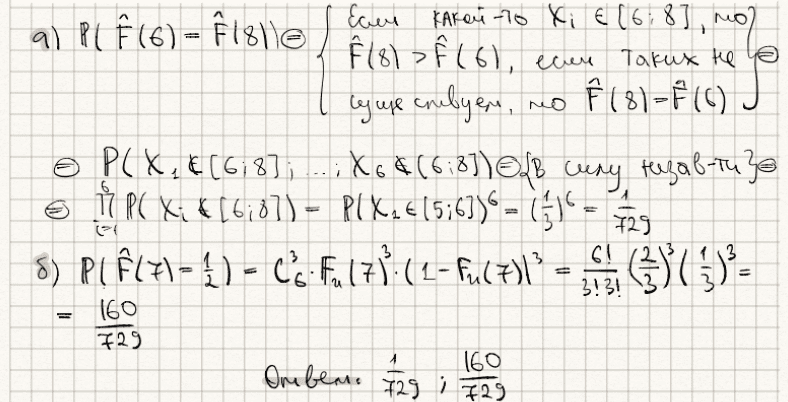 а) P( F̂(6) = F̂(8)) ⊜ { Если какой-то Xᵢ ∈ [6;8], то
F̂(8) > F̂(6), если таких не
существует, то F̂(8) = F̂(6) } ⊜
⊜ P( X₁ ∉ [6;8]; ...; X₆ ∉ [6;8]) ⊜ {В силу незав-ти} ⊜
⊜ ∏ᵢ₌₁⁶ P( Xᵢ ∉ [6;8]) = P(X₁ ∈ [5;6])⁶ = (1/3)⁶ = 1/729
б) P( F̂(7) = 1/2 ) = C₆³ · Fᵤ(7)³ · (1 - Fᵤ(7))³ = 6!/3!3! (2/3)³ (1/3)³ =
= 160/729
Ответ: 1/729 ; 160/729